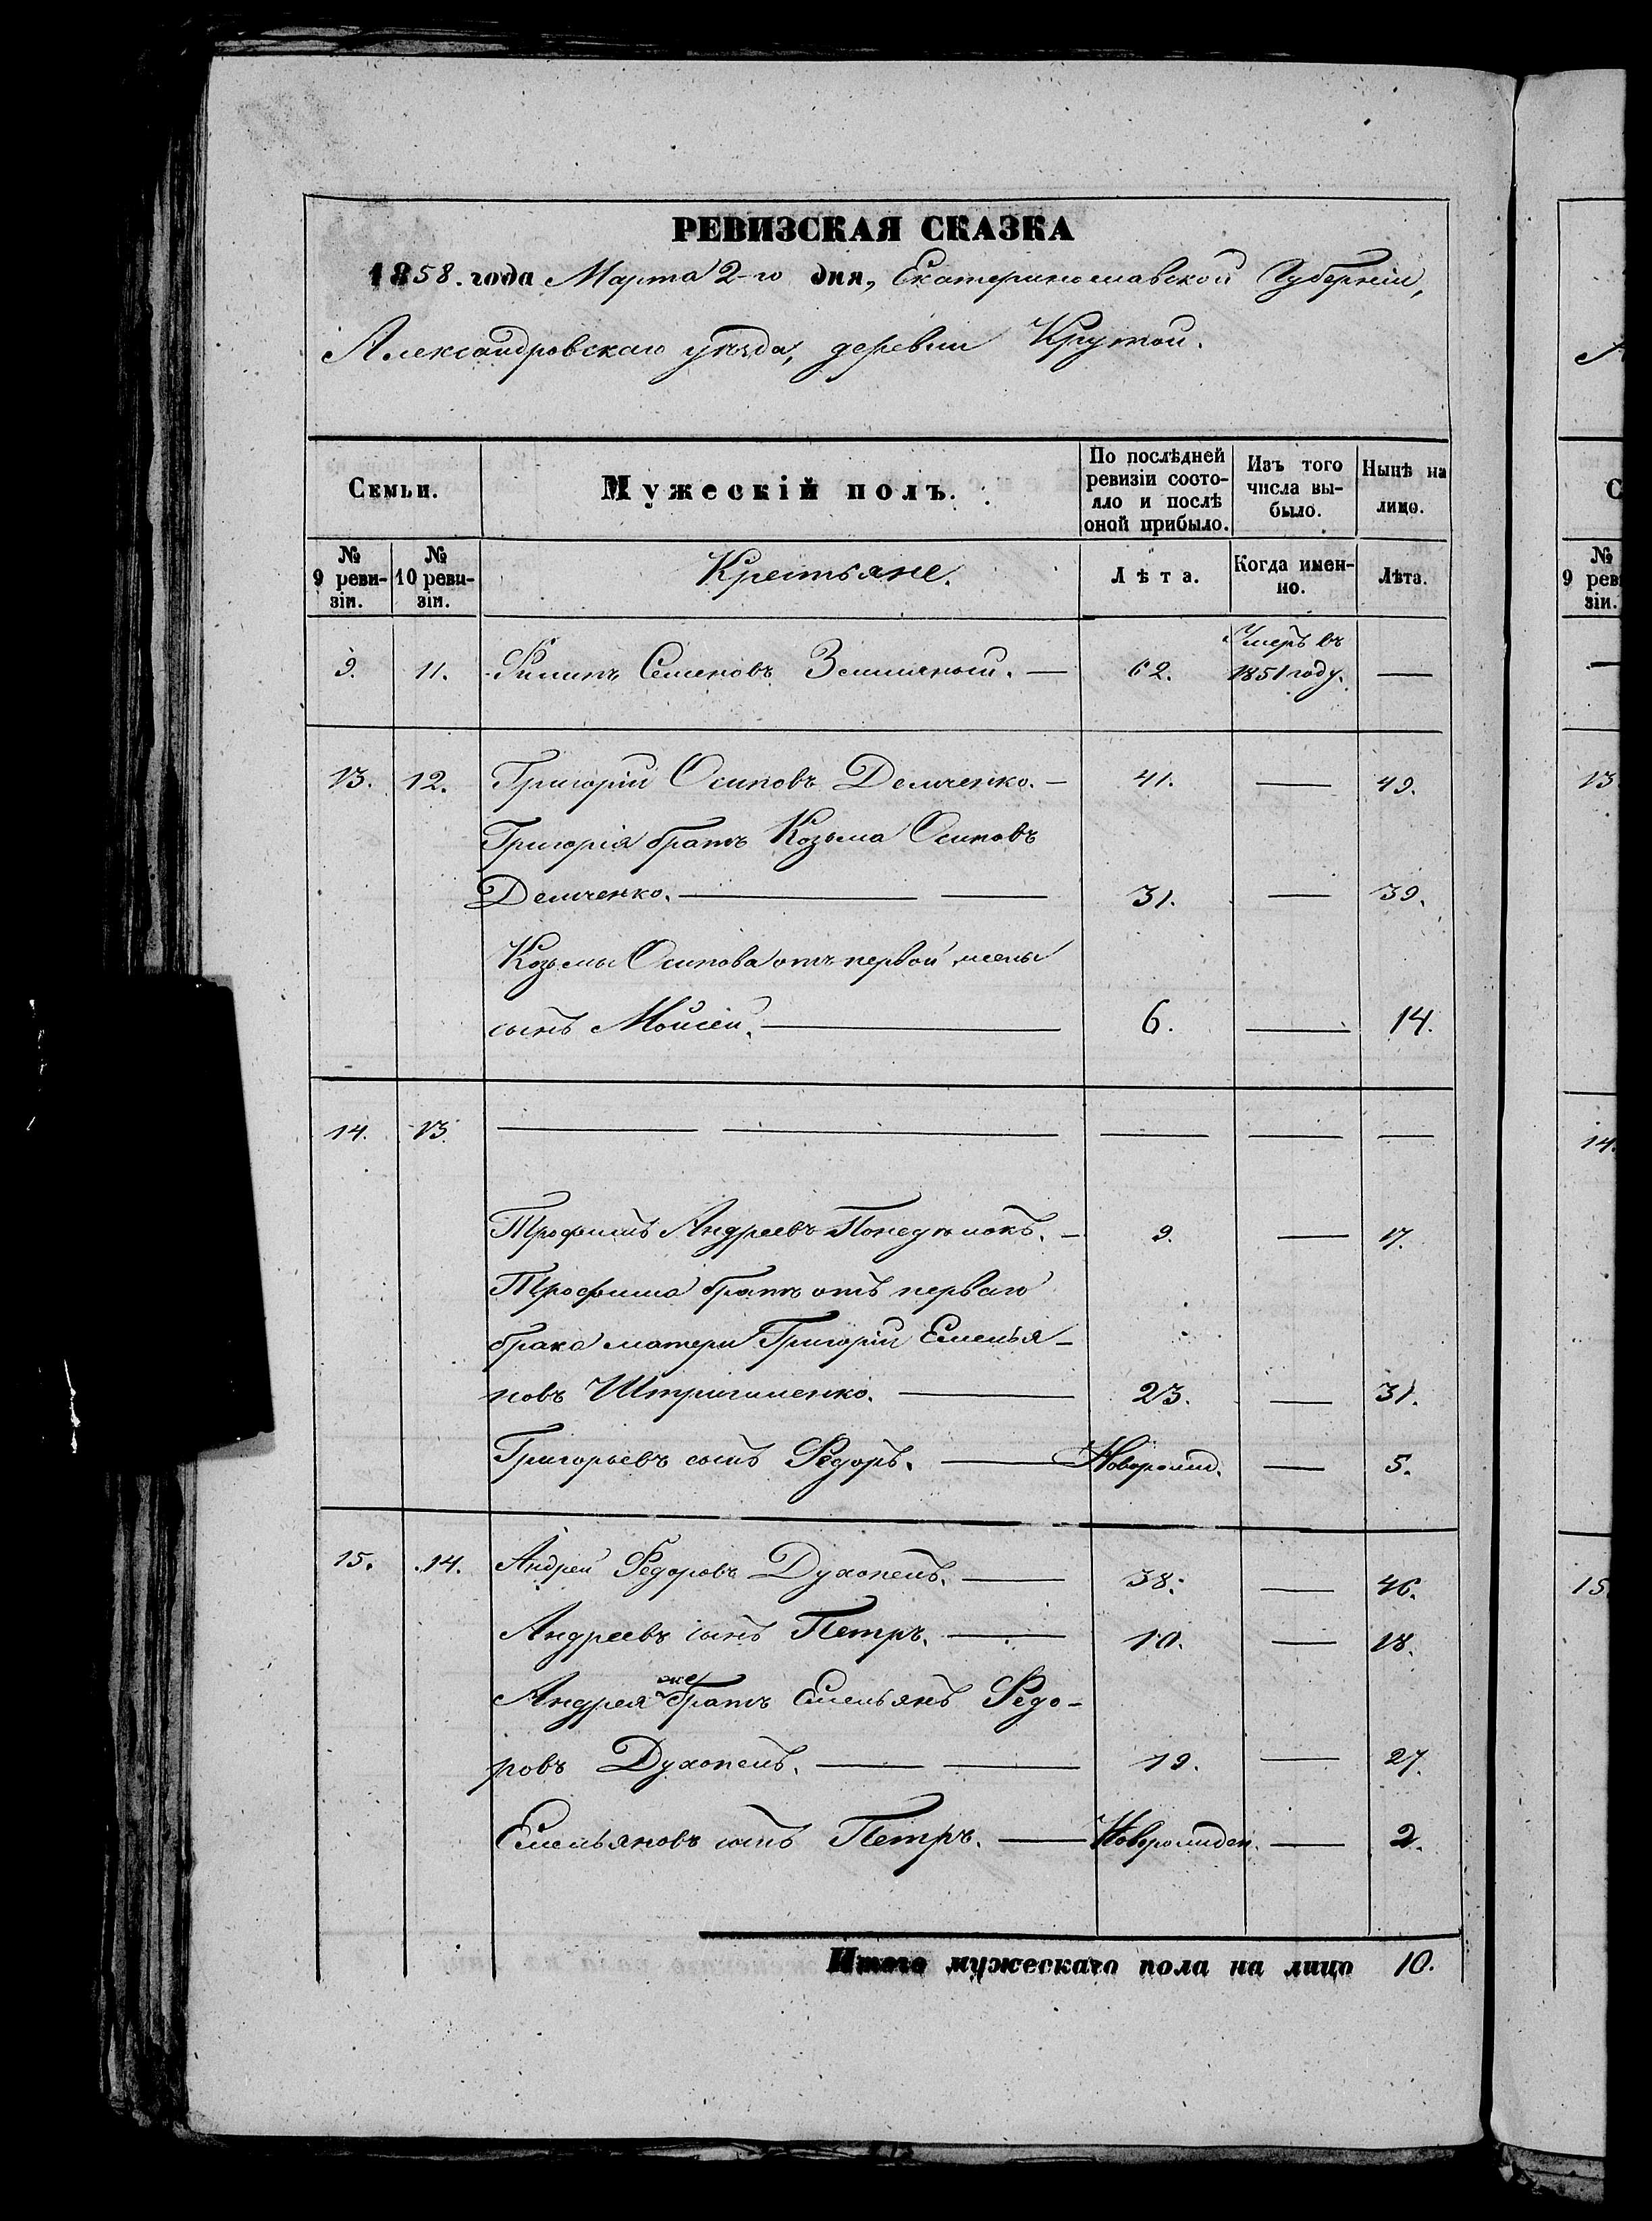 РЕВИЗСКАЯ СКАЗКА
1858. года Марта 2-го дня, Екатеринославской Губерніи,
Александровскаго уѣзда, деревни Крутой.
Семьи.
Мужескій полъ.
По послѣдней ревизіи состо-
яло и послѣ
оной прибыло.
Изъ того
числа вы-
было.
Нынѣ на
лицо.
№
9 реви-
зіи.
№
10 реви-
зіи.
Крестьяне.
Лѣта.
Когда имен-
но.
Лѣта.
9. 11. Филипъ Семеновъ Земляной. — 62. Умеръ въ
1851 году. —
13. 12. Григорій Осиповъ Демченко. — 41. — 49.
Григорія братъ Козьма Осиповъ
Демченко. — — 31. — 39.
Козьмы Осипова отъ первой жены
сынъ Мойсей. — 6. — 14.
14. 13. — — — — —
Трофимъ Андреевъ Понедѣлокъ. — 9. — 17.
Трофима братъ отъ перваго
брака матери Григорій Емелья-
новъ — 23. — 31.
Григорьевъ сынъ Федоръ. — Новорожд. — 5.
15. 14. Андрей Федоровъ Духопелъ. — 38. — 46.
Андреевъ сынъ Петръ. — 10. — 18.
Андрея же братъ Емельянъ Федо-
ровъ Духопелъ. — — 19. — 27.
Емельяновъ сынъ Петръ. — Новорожден. — 2.
Итого мужескаго пола на лицо 10.
А
С
№
9 реви
зіи.
—
13
14.
15.